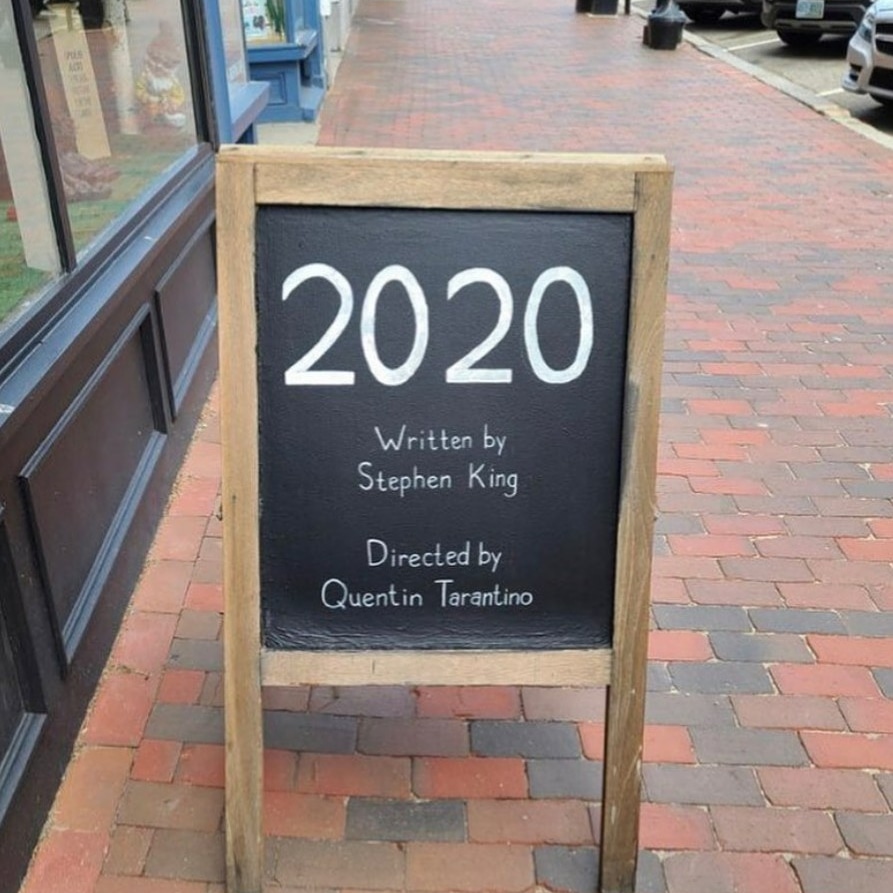 2020
Written by
Stephen King
Directed by
Quentin Tarantino